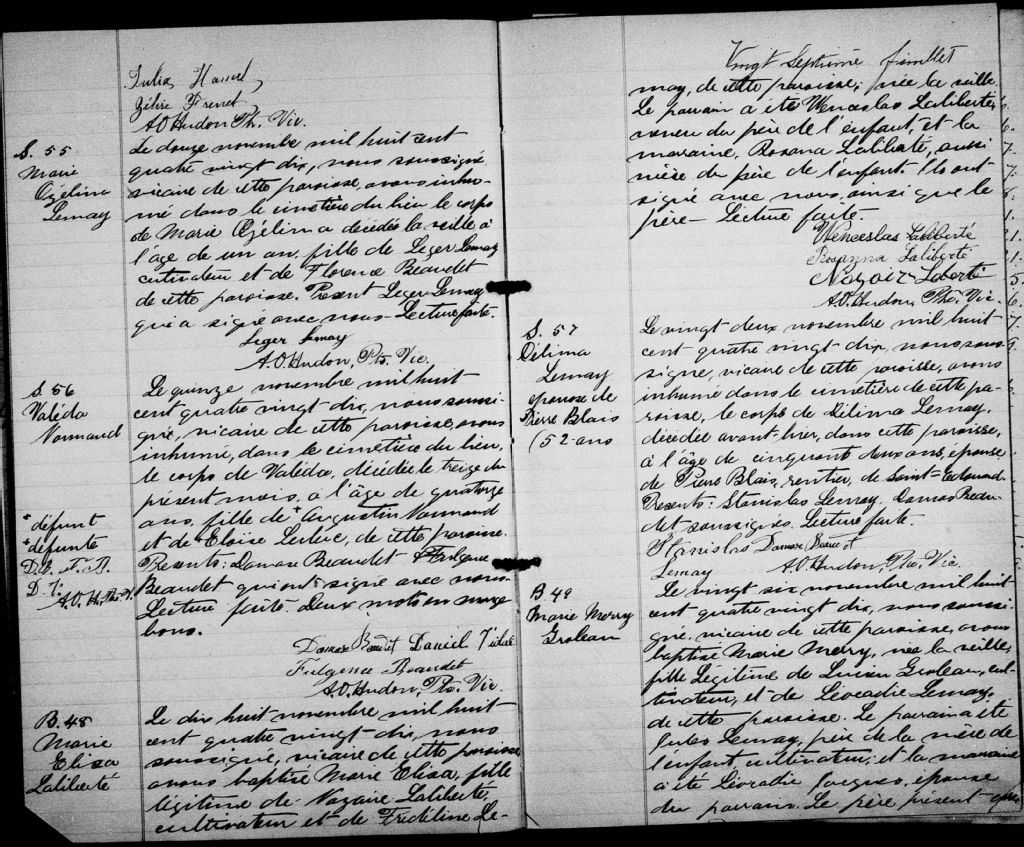 Zélire
A.O. Hudon, Ptr. Vic.
S. 55
Marie
Ozélina
Lemay
Le douze novembre mil huit cent
quatre vingt dix, nous soussigné,
vicaire de cette paroisse, avons inhu-
mé dans le cimetière du lieu le corps
de Marie Ozélina décédée la veille à
l'âge de un an, fille de Leger Lemay
cultivateur et de Florence Beaudet
de cette paroisse. Présent Leger Lemay
qui a signé avec nous. Lecture faite.
Leger Lemay
A.O. Hudon, Ptr. Vic.
S. 56
Valéda
Normand
Le quinze novembre mil huit
cent quatre vingt dix, nous soussi-
gné, vicaire de cette paroisse, avons
inhumé, dans le cimetière du lieu,
le corps de Valéda, décédée le treize du
présent mois, à l'âge de quatorze
ans, fille de + Augustin Normand
et de + Eloise Leclerc, de cette paroisse.
Présents: Damase Beaudet & Fulgence
Beaudet qui ont signé avec nous.
Lecture faite. Deux mots en marge
bons.
+ défunt
+ défunte
D.B. F.B.
D.V.
A.O.H. Ptr. V.
Damase Beaudet Daniel
Fulgence Beaudet
A.O. Hudon, Ptr. Vic.
B. 48
Marie
Elisa
Laliberté
Le dix huit novembre mil huit
cent quatre vingt dix, nous
soussigné, vicaire de cette paroisse
avons baptisé Marie Elisa, fille
légitime de Nazaire Laliberté,
cultivateur et de Fridéline Le-
Vingt Septième feuillet
may, de cette paroisse; née la veille.
Le parrain a été Wenceslas Laliberté,
neveu du père de l'enfant, et la
marraine, Rosana Laliberté, aussi
nièce du père de l'enfant. Ils ont
signé avec nous, ainsi que le
père. Lecture faite.
Wenceslas Laliberté
Rosanna Laliberté
A.O. Hudon, Ptr. Vic.
S. 57
Délima
Lemay
epouse de
Pierre Blais
(52 ans
Le vingt deux novembre mil huit
cent quatre vingt dix, nous sous-
signé, vicaire de cette paroisse, avons
inhumé dans le cimetière de cette pa-
roisse, le corps de Délima Lemay,
décédée avant-hier, dans cette paroisse,
à l'âge de cinquante deux ans, épouse
de Pierre Blais, rentier, de Saint-Edouard.
Présents: Stanislas Lemay, Damase Beau-
det soussignés. Lecture faite
Stanislas Damase Beaudet
Lemay A.O. Hudon, Ptr. Vic.
B 49
Marie Merry
Groleau
Le vingt six novembre mil huit
cent quatre vingt dix, nous soussi-
gné, vicaire de cette paroisse, avons
baptisé Marie Merry, née la veille,
fille légitime de Lucien Groleau, cul-
tivateur, et de Léocadie Lemay,
de cette paroisse. Le parrain a été
Jules Lemay, père de la mère de
l'enfant cultivateur; et la marraine
a été Léocadie épouse
du parrain. Le père présent